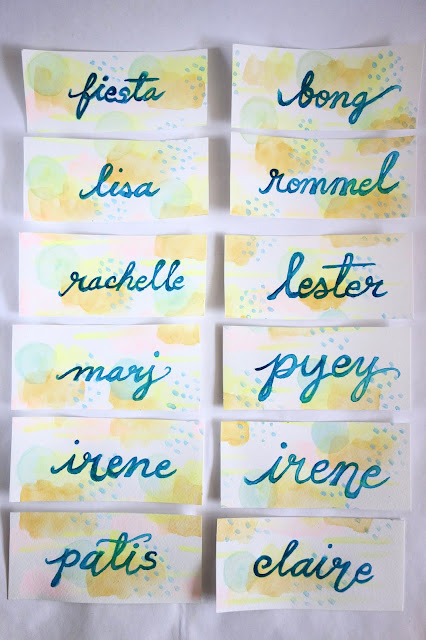 fiesta
bong
lisa
rommel
rachelle
lester
marj
pyey
irene
irene
patis
claire